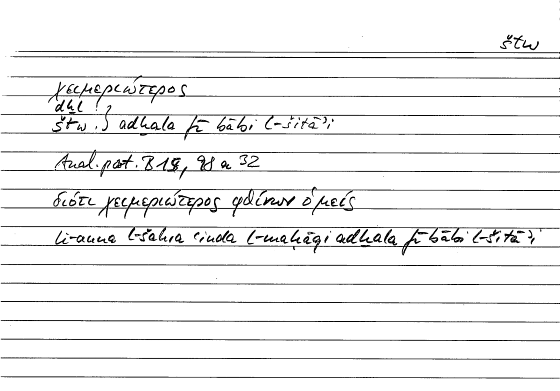 štw
χειμεριώτερος
dḫl :
štw : } adḫala fī bābi l-šitāʾi
Anal. post. B 15, 98 a 32
διότι χειμεριώτερος φθίνων ὁ μείς
li-anna l-šahra ʿinda l-maḥāqi adḫala fī bābi l-šitāʾi